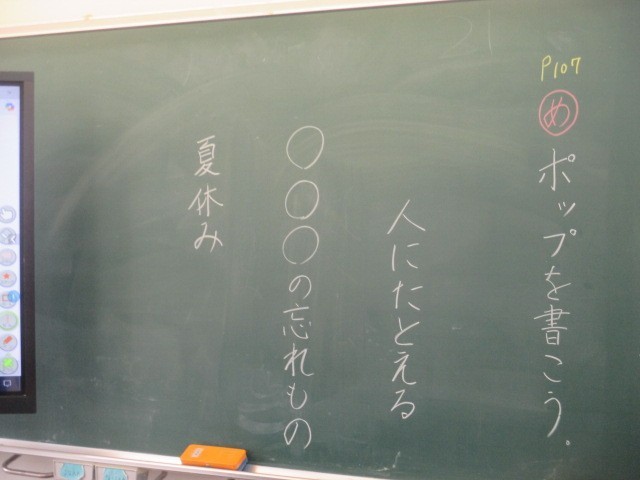 P107
め ポップを書こう。
人にたとえる
○○○の忘れもの
夏休み